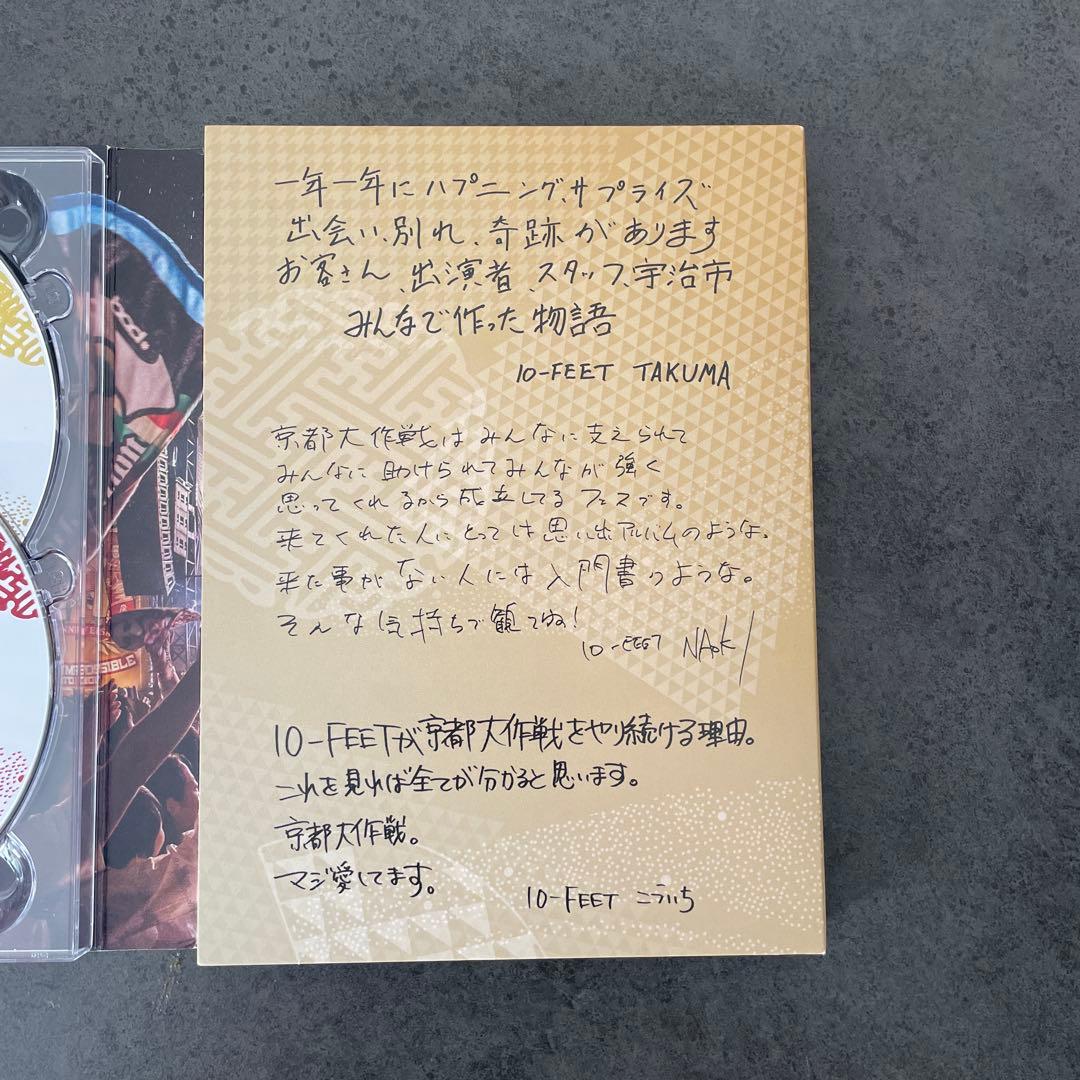 一年一年にハプニング、サプライズ
出会い、別れ、奇跡があります
お客さん、出演者、スタッフ、宇治市
みんなで作った物語
10-FEET TAKUMA
京都大作戦はみんなに支えられて
みんなに助けられてみんなが強く
思ってくれるから成立してるフェスです。
来てくれた人にとっては思い出アルバムのような。
来た事がない人には入門書のような。
そんな気持ちで観てね!
10-FEET NAOKI
10-FEETが京都大作戦をやり続ける理由。
これを見れば全てが分かると思います。
京都大作戦。
マジ愛してます。
10-FEET こういち
IMPOSSIBLE